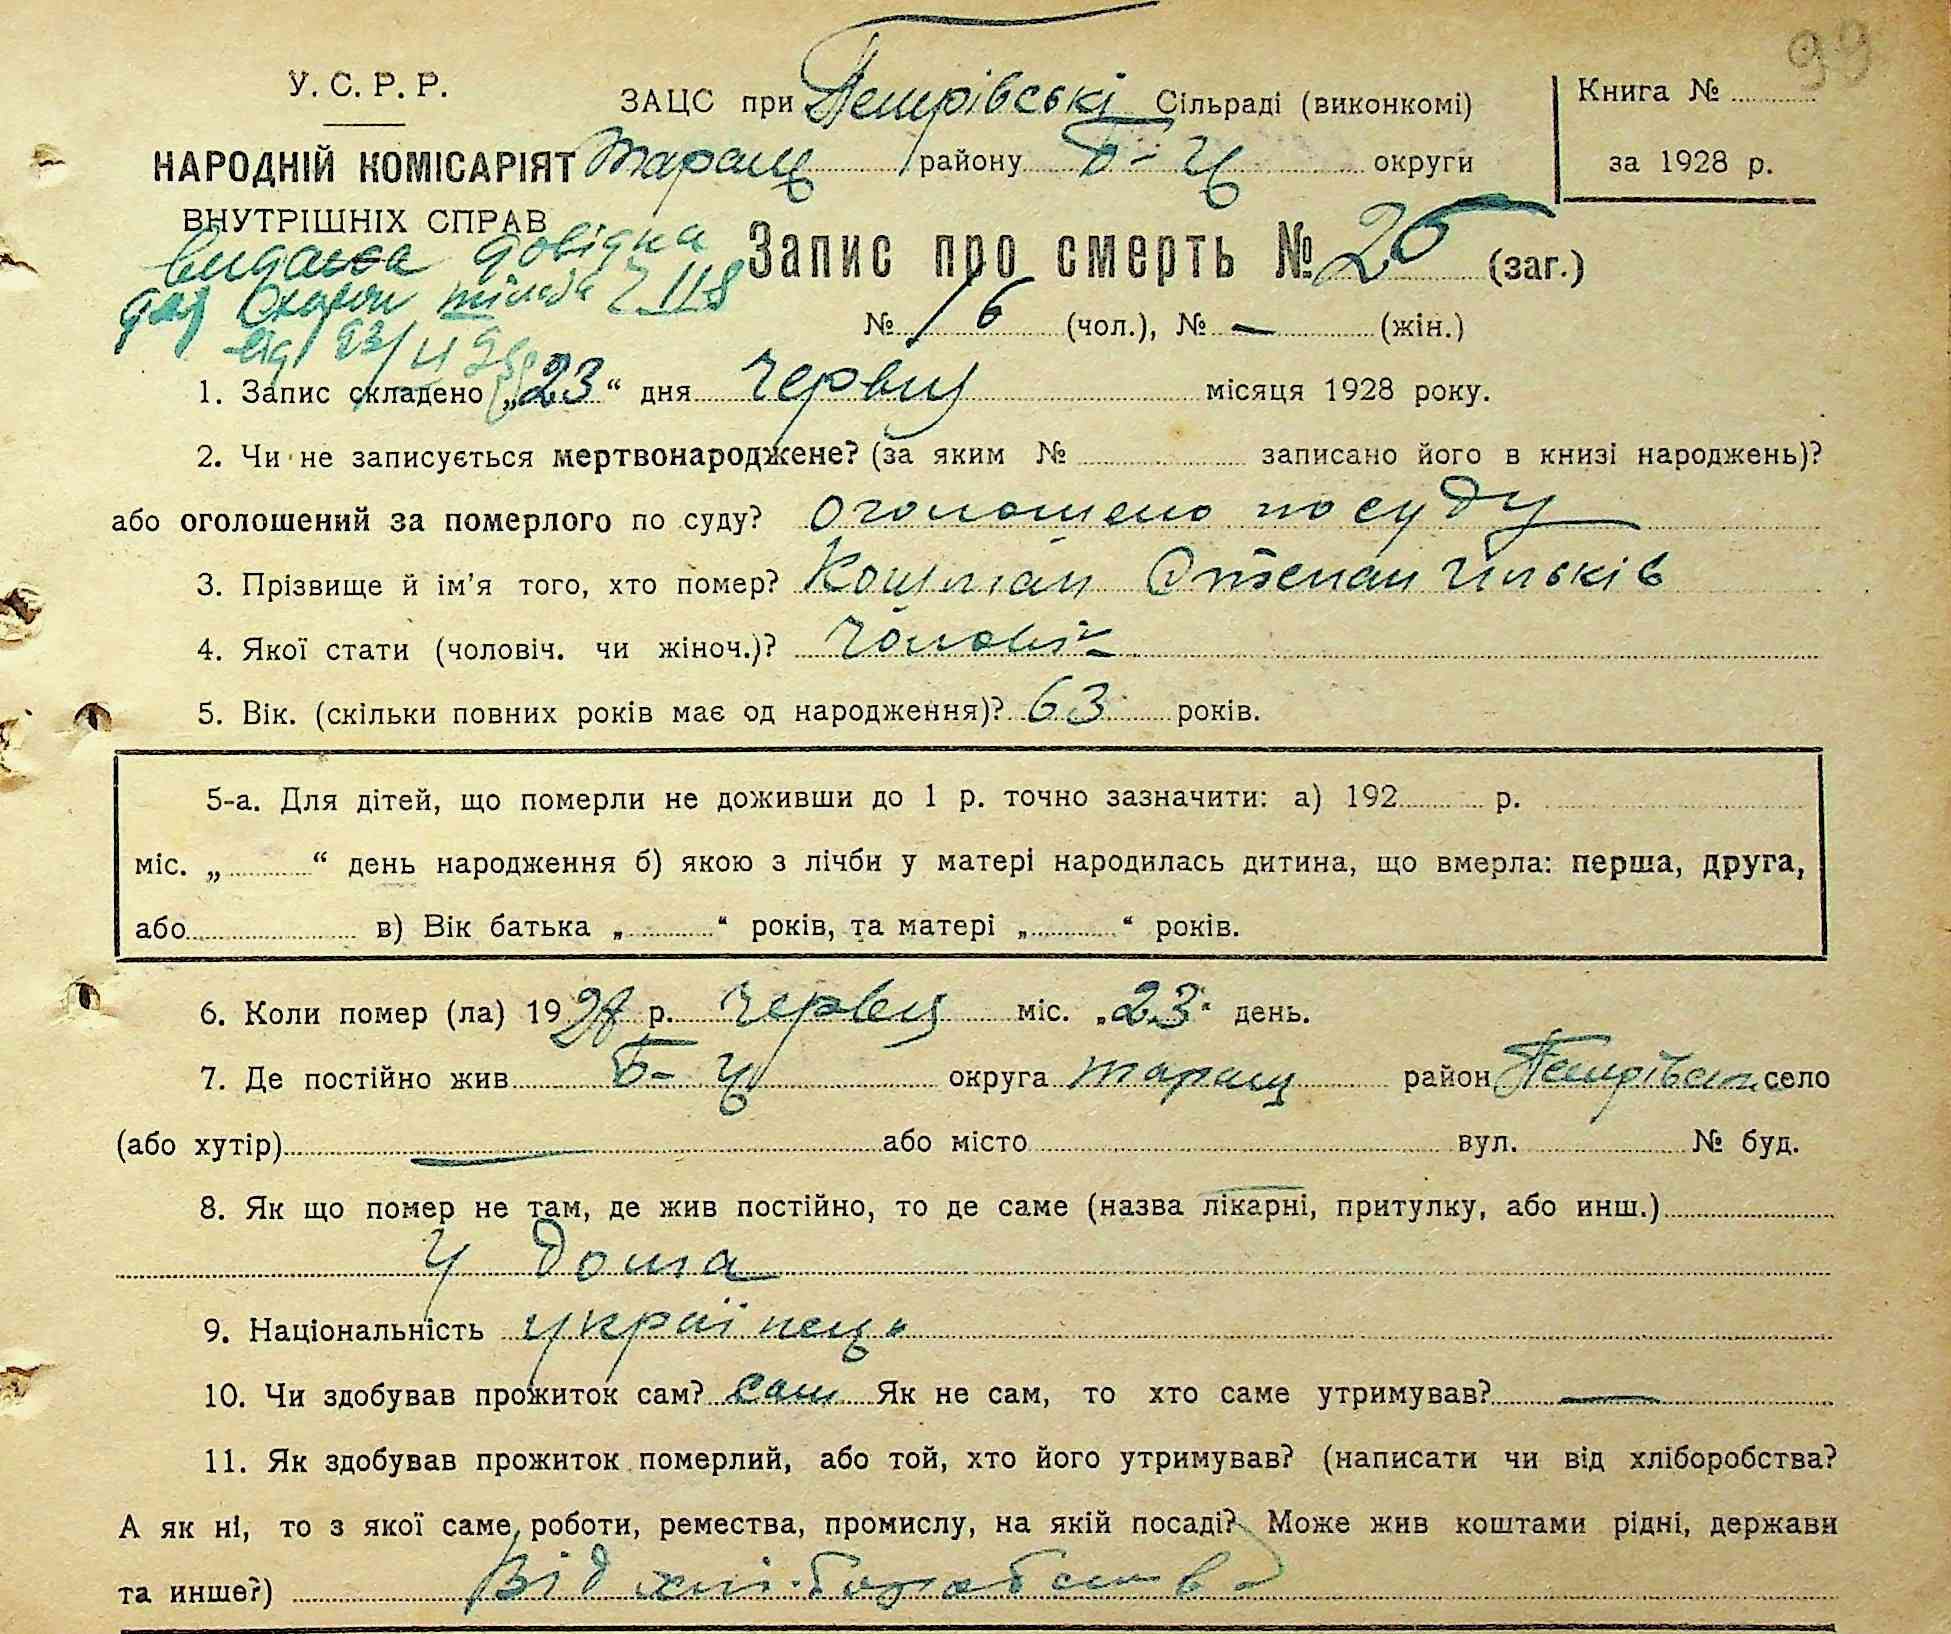 99
У. С. Р. Р.
ЗАЦС при Петрівські Сільраді (виконкомі)
Книга №
НАРОДНІЙ КОМІСАРІЯТ
Таращ району Б-Ц округи
за 1928 р.
ВНУТРІШНІХ СПРАВ
видана довідка
Запис про смерть № 26 (заг.)
від 23/
№ 16 (чол.), № — (жін.)
1. Запис складено „23“ дня червця місяця 1928 року.
2. Чи не записується мертвонароджене? (за яким № записано його в книзі народжень)?
або оголошений за померлого по суду? оголошено по суду
3. Прізвище й ім’я того, хто помер? Степан
4. Якої стати (чоловіч. чи жіноч.)? чоловік
5. Вік. (скільки повних років має од народження)? 63 років.
5-а. Для дітей, що померли не доживши до 1 р. точно зазначити: а) 192 р.
міс. „ “ день народження б) якою з лічби у матері народилась дитина, що вмерла: перша, друга,
або в) Вік батька „ “ років, та матері „ “ років.
6. Коли помер (ла) 1928 р. червця міс. „23“ день.
7. Де постійно жив Б-Ц округа Таращ район Петрівськ село
(або хутір) — або місто вул. № буд.
8. Як що помер не там, де жив постійно, то де саме (назва лікарні, притулку, або инш.)
у дома
9. Національність українець
10. Чи здобував прожиток сам? сам Як не сам, то хто саме утримував? —
11. Як здобував прожиток померлий, або той, хто його утримував? (написати чи від хліборобства?
А як ні, то з якої саме роботи, ремества, промислу, на якій посаді? Може жив коштами рідні, держави
та инше?) Від хліборобства